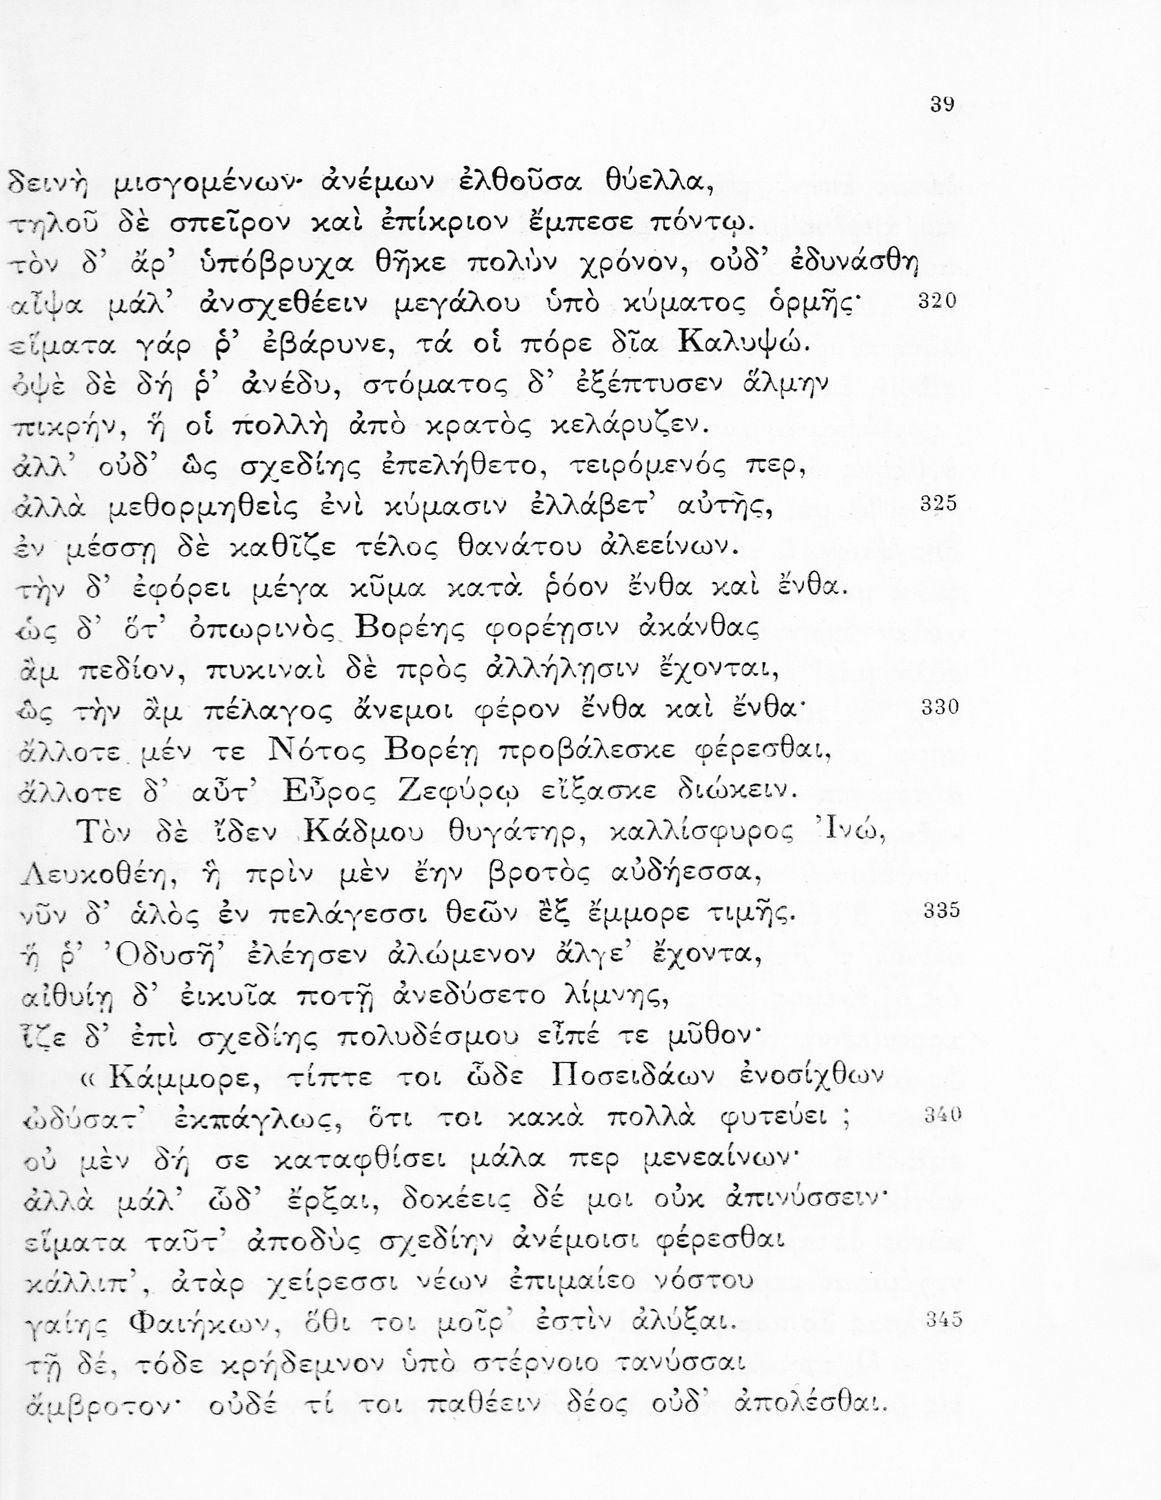 39
δεινὴ μισγομένων· ἀνέμων ἐλθοῦσα θύελλα,
τηλοῦ δὲ σπεῖρον καὶ ἐπίκριον ἔμπεσε πόντῳ.
τὸν δ’ ἄρ’ ὑπόβρυχα θῆκε πολὺν χρόνον, οὐδ’ ἐδυνάσθη
αἶψα μάλ’ ἀνσχεθέειν μεγάλου ὑπὸ κύματος ὁρμῆς· 320
εἵματα γάρ ῥ’ ἐβάρυνε, τά οἱ πόρε δῖα Καλυψώ.
ὀψὲ δὲ δή ῥ’ ἀνέδυ, στόματος δ’ ἐξέπτυσεν ἅλμην
πικρήν, ἥ οἱ πολλὴ ἀπὸ κρατὸς κελάρυζεν.
ἀλλ’ οὐδ’ ὣς σχεδίης ἐπελήθετο, τειρόμενός περ,
ἀλλὰ μεθορμηθεὶς ἐνὶ κύμασιν ἐλλάβετ’ αὐτῆς, 325
ἐν μέσσῃ δὲ καθῖζε τέλος θανάτου ἀλεείνων.
τὴν δ’ ἐφόρει μέγα κῦμα κατὰ ῥόον ἔνθα καὶ ἔνθα.
ὡς δ’ ὅτ’ ὀπωρινὸς Βορέης φορέῃσιν ἀκάνθας
ἂμ πεδίον, πυκιναὶ δὲ πρὸς ἀλλήλῃσιν ἔχονται,
ὣς τὴν ἂμ πέλαγος ἄνεμοι φέρον ἔνθα καὶ ἔνθα· 330
ἄλλοτε μέν τε Νότος Βορέῃ προβάλεσκε φέρεσθαι,
ἄλλοτε δ’ αὖτ’ Εὖρος Ζεφύρῳ εἴξασκε διώκειν.
Τὸν δὲ ἴδεν Κάδμου θυγάτηρ, καλλίσφυρος Ἰνώ,
Λευκοθέη, ἣ πρὶν μὲν ἔην βροτὸς αὐδήεσσα,
νῦν δ’ ἁλὸς ἐν πελάγεσσι θεῶν ἒξ ἔμμορε τιμῆς. 335
ἥ ῥ’ Ὀδυσῆ’ ἐλέησεν ἀλώμενον ἄλγε’ ἔχοντα,
αἰθυίῃ δ’ ἐικυῖα ποτῇ ἀνεδύσετο λίμνης,
ἷζε δ’ ἐπὶ σχεδίης πολυδέσμου εἶπέ τε μῦθον·
« Κάμμορε, τίπτε τοι ὧδε Ποσειδάων ἐνοσίχθων
ὠδύσατ’ ἐκπάγλως, ὅτι τοι κακὰ πολλὰ φυτεύει ; 340
οὐ μὲν δή σε καταφθίσει μάλα περ μενεαίνων·
ἀλλὰ μάλ’ ὧδ’ ἔρξαι, δοκέεις δέ μοι οὐκ ἀπινύσσειν·
εἵματα ταῦτ’ ἀποδὺς σχεδίην ἀνέμοισι φέρεσθαι
κάλλιπ’, ἀτὰρ χείρεσσι νέων ἐπιμαίεο νόστου
γαίης Φαιήκων, ὅθι τοι μοῖρ’ ἐστὶν ἀλύξαι. 345
τῇ δέ, τόδε κρήδεμνον ὑπὸ στέρνοιο τανύσσαι
ἄμβροτον· οὐδέ τί τοι παθέειν δέος οὐδ’ ἀπολέσθαι.